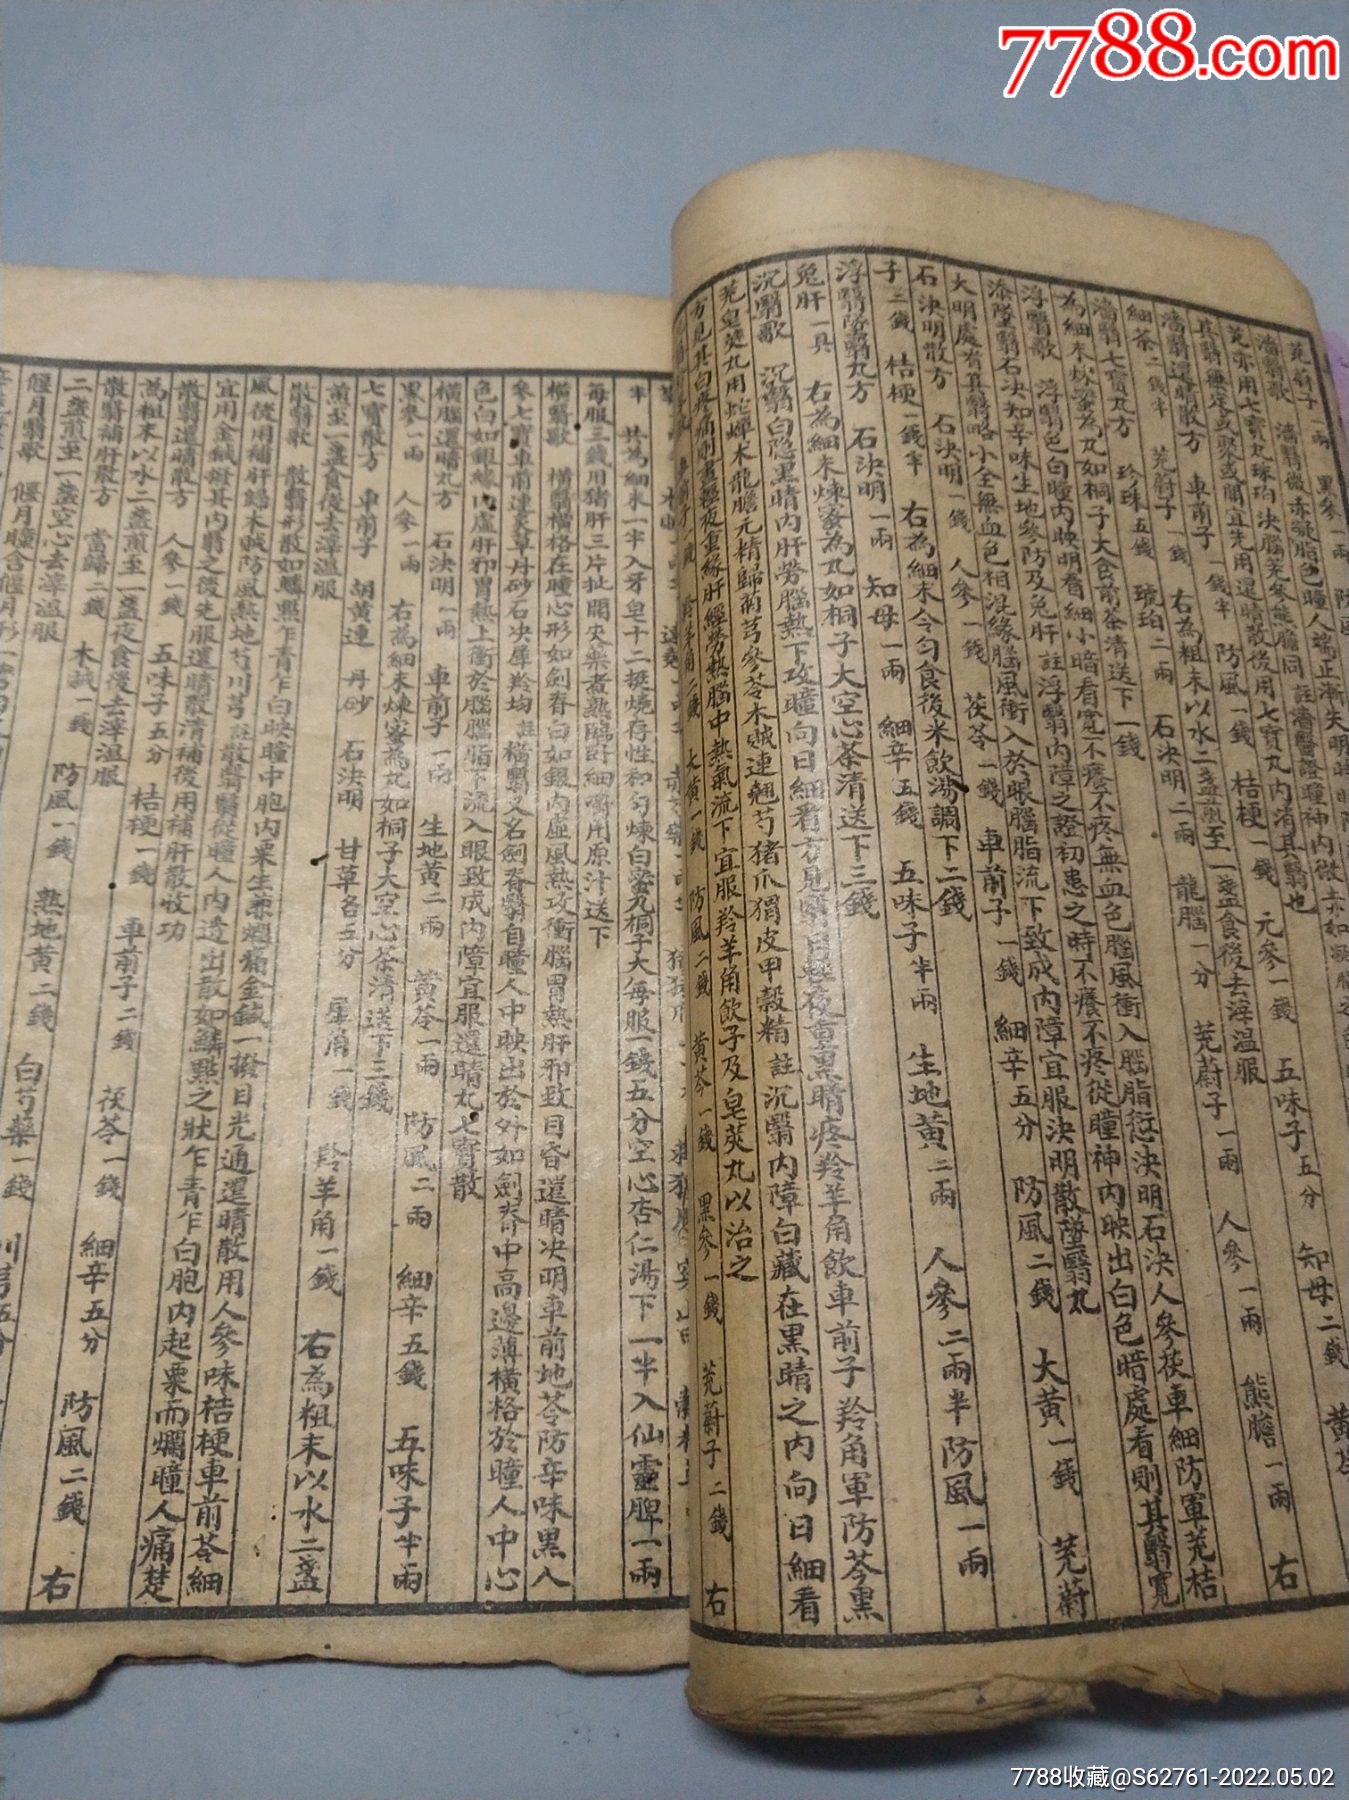 7788.com
茺蔚子一兩 黑參一兩 防風
濇翳歌 濇翳微赤凝脂色瞳人端正漸失明時
茺亦用七寶丸珠珀決腦茺參熊膽同 註濇翳證瞳神內微赤如凝脂之色
其翳無定或聚或開宜先用還睛散後用七寶丸內清其翳也
濇翳還睛散方 車前子一錢半 防風一錢 桔梗一錢 元參一錢 五味子五分 知母二錢 黃芩
細茶二錢半 茺蔚子一錢 右為粗末以水二盞煎至一盞食後去滓溫服
濇翳七寶丸方 珍珠五錢 琥珀二兩 石決明二兩 龍腦一分 茺蔚子一兩 人參一兩 熊膽一兩 右
為細末煉蜜為丸如桐子大食前茶清送下一錢
浮翳歌 浮翳色白瞳內映明看細小暗看寬不癢不疼無血色腦風衝入腦脂愆決明石決人參茯車細防軍茺桔
添墜翳石決知辛味生地參防及兔肝 註浮翳內障之證初患之時不癢不疼從瞳神內映出白色暗處看則其翳寬
大明處看其翳略小全無血色相混緣腦風衝入於眼腦脂流下致成內障宜服決明散墜翳丸
石決明散方 石決明一錢 人參一錢 茯苓一錢 車前子一錢 細辛五分 防風二錢 大黃一錢 茺蔚
子二錢 桔梗一錢半 右為細末令勻食後米飲湯調下二錢
浮翳墜翳丸方 石決明一兩 知母一兩 細辛五錢 五味子半兩 生地黃二兩 人參二兩半 防風一兩
兔肝一具 右為細末煉蜜為丸如桐子大空心茶清送下三錢
沉翳歌 沉翳白隱黑睛內肝勞腦熱下攻瞳向日細看方見翳日輕夜重黑睛疼羚羊角飲車前子羚角軍防芩黑
茺皂莢丸用蛇蟬木龍膽元精歸菊芎參苓木賊連翹芍豬爪猬皮甲穀精 註沉翳內障白藏在黑睛之內向日細看
方見其白疼痛則晝輕夜重緣肝經勞熱腦中熱氣流下宜服羚羊角飲子及皂莢丸以治之
車前子一錢 羚羊角二錢 大黃一錢 防風二錢 黃芩一錢 黑參一錢 茺蔚子二錢 右
半 共為細末一半入牙皂十二挺燒存性和勻煉白蜜丸桐子大每服一錢五分空心杏仁湯下一半入仙靈脾一兩
每服三錢用豬肝三片扯開夾藥煮熟臨卧細嚼用原汁送下
橫翳歌 橫翳橫格在瞳心形如劍脊白如銀內虛風熱攻衝腦胃熱肝邪致目昏還睛決明車前地苓防辛味黑人
參七寶車前連炙草丹砂石決犀羚均 註橫翳又名劍脊翳自瞳人中映出於外如劍脊中高邊薄橫格於瞳人中心
色白如銀緣內虛肝邪胃熱上衝於腦腦脂下流入眼致成內障宜服還睛丸七寶散
橫翳還睛丸方 石決明一兩 車前子一兩 生地黃二兩 黃芩一兩 防風二兩 細辛五錢 五味子半兩
黑參一兩 人參一兩 右為細末煉蜜為丸如桐子大空心茶清送下三錢
七寶散方 車前子 胡黃連 丹砂 石決明 甘草各五分 犀角一錢 羚羊角一錢 右為粗末以水二盞
煎至一盞食後去滓溫服
散翳歌 散翳形散如鱗點乍青乍白映瞳中胞內粟生兼爛痛金鍼一撥目光通還睛散用人參味桔梗車前苓細
風後用補肝歸木賊防風熟地芍川芎 註散翳翳從瞳人內透出散如鱗點之狀乍青乍白胞內起粟而爛瞳人痛楚
宜用金鍼撥其內翳之後先服還睛散清補後用補肝散收功
散翳還睛散方 人參一錢 五味子五分 桔梗一錢 車前子二錢 茯苓一錢 細辛五分 防風二錢 右
為粗末以水二盞煎至一盞夜食後去滓溫服
散翳補肝散方 當歸二錢 木賊一錢 防風一錢 熟地黃二錢 白芍藥一錢 川芎五分
二盞煎至一盞空心去滓溫服
偃月翳歌 偃月瞳含偃月形
7788收藏@S62761-2022.05.02